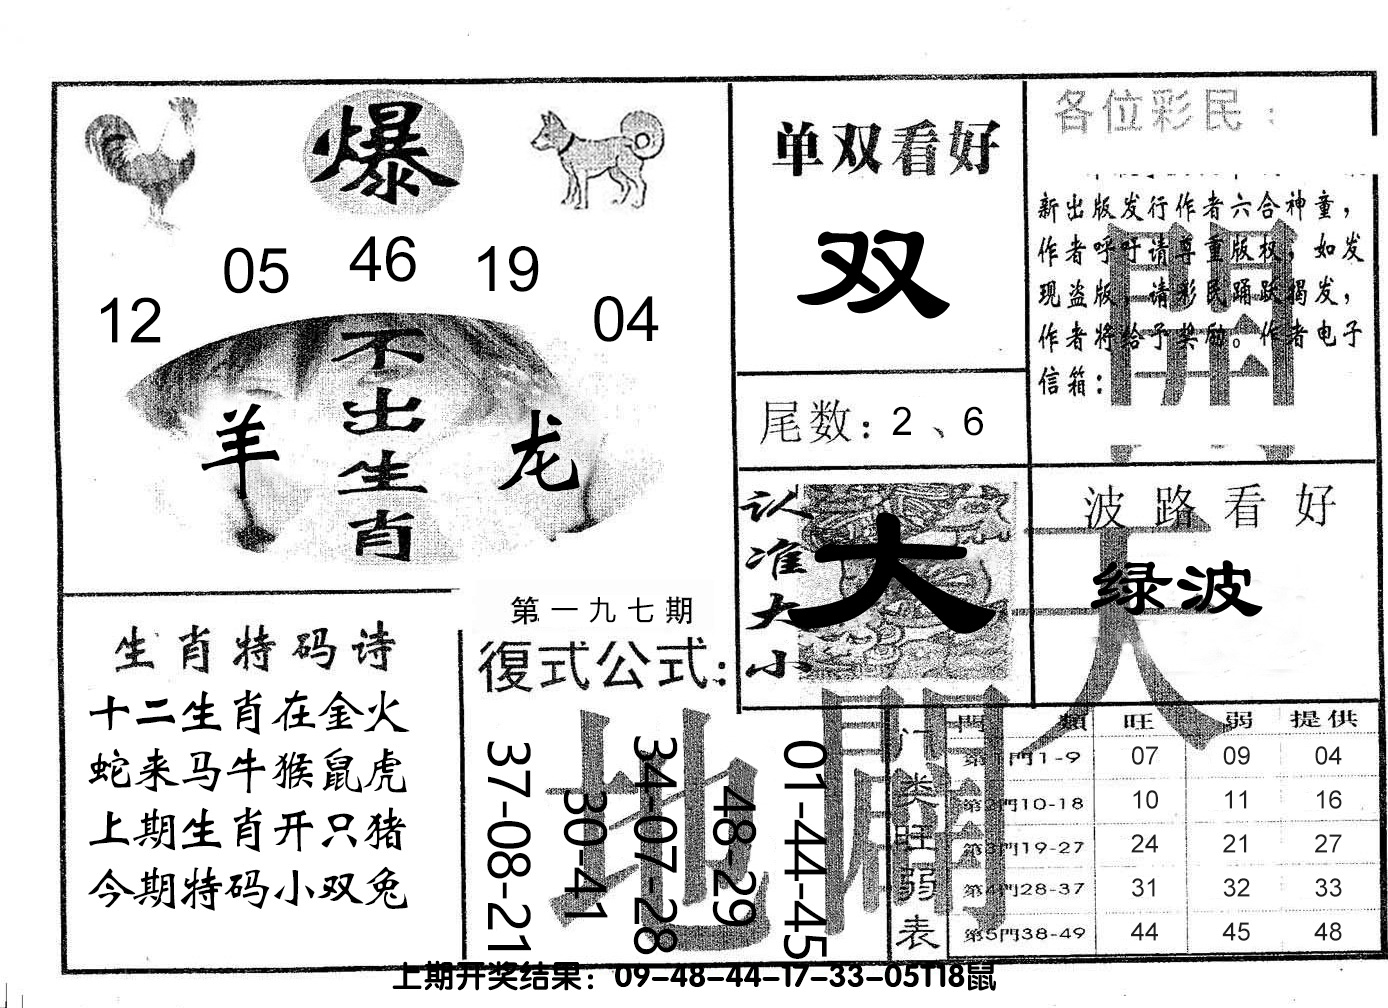 爆
05 46 19
12 04
不出生肖
羊 龙
单双看好
双
尾数：2、6
认准大小
大
各位彩民：
新出版发行作者六合神童，
作者呼吁请尊重版权，如发
现盗版，请彩民踊跃揭发，
作者将给予奖励。作者电子
信箱：
波路看好
绿波
生肖特码诗
十二生肖在金火
蛇来马牛猴鼠虎
上期生肖开只猪
今期特码小双兔
第一九七期
復式公式：
37-08-21
30-41
34-07-28
48-29
01-44-45
天
地
開
門类旺弱表
門類 旺 弱 提供
第1門1-9 07 09 04
第2門10-18 10 11 16
第3門19-27 24 21 27
第4門28-37 31 32 33
第5門38-49 44 45 48
上期开奖结果：09-48-44-17-33-05T18鼠